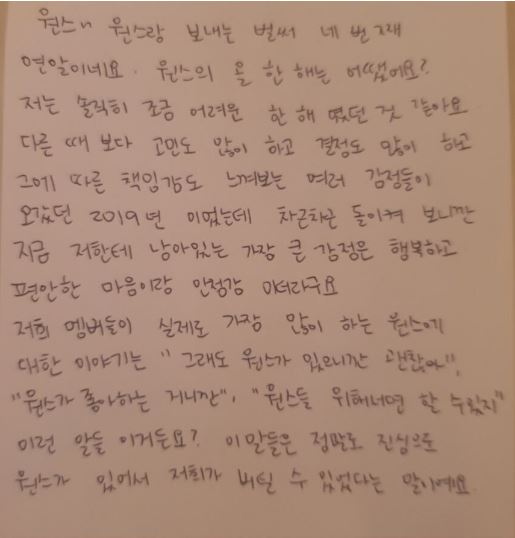 원스~ 원스랑 보내는 벌써 네 번째
연말이네요. 원스의 올 한 해는 어땠어요?
저는 솔직히 조금 어려운 한 해 였던 것 같아요
다른 때 보다 고민도 많이 하고 결정도 많이 하고
그에 따른 책임감도 느껴보는 여러 감정들이
오갔던 2019년 이었는데 차근차근 돌이켜 보니깐
지금 저한테 남아있는 가장 큰 감정은 행복하고
편안한 마음이랑 안정감 이더라구요
저희 멤버들이 실제로 가장 많이 하는 원스에
대한 이야기는 "그래도 원스가 있으니깐 괜찮아",
"원스가 좋아하는 거니깐", "원스를 위해서면 할 수있지"
이런 말들 이거든요? 이말들은 정말로 진심으로
원스가 있어서 저희가 버틸 수 있었다는 말이예요.